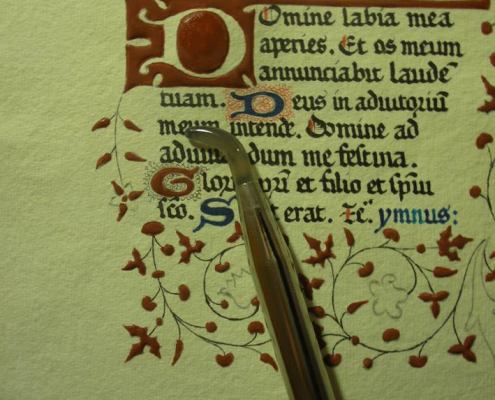 Domine labia mea
aperies. Et os meum
annunciabit laudē
tuam. Deus in adiutoriū
meum intende. Domine ad
dum me festina.
et filio et sp̄ui
sc̄o. erat. ymnus: